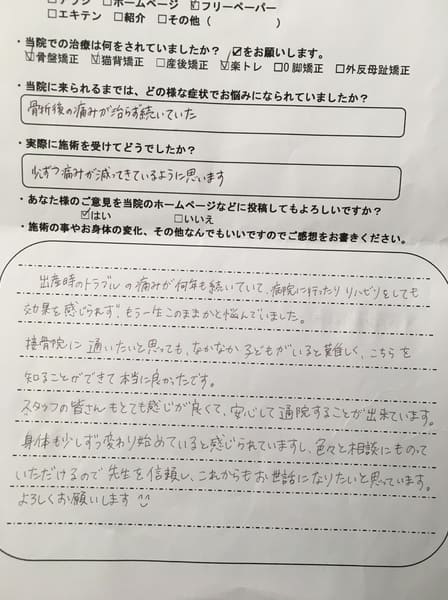 □チラシ □ホームページ ☑フリーペーパー
□エキテン □紹介 □その他（ ）
・当院での治療は何をされていましたか？ ☑をお願いします。
☑骨盤矯正 ☑猫背矯正 □産後矯正 ☑楽トレ □O脚矯正 □外反母趾矯正
・当院に来られるまでは、どの様な症状でお悩みになられていましたか？
骨折後の痛みが治らず続いていた
・実際に施術を受けてどうでしたか？
少しずつ痛みが減ってきているように思います
・あなた様のご意見を当院のホームページなどに投稿してもよろしいですか？
☑はい □いいえ
・施術の事やお身体の変化、その他なんでもいいですのでご感想をお書きください。
出産時のトラブルの痛みが何年も続いていて、病院に行ったりリハビリをしても
効果を感じられず、もう一生このままかと悩んでいました。
接骨院に通いたいと思っても、なかなか子どもがいると難しく、こちらを
知ることができて本当に良かったです。
スタッフの皆さんもとても感じが良くて、安心して通院することが出来ています。
身体も少しずつ変わり始めていると感じられていますし、色々と相談にものって
いただけるので先生を信頼し、これからもお世話になりたいと思っています。
よろしくお願いします